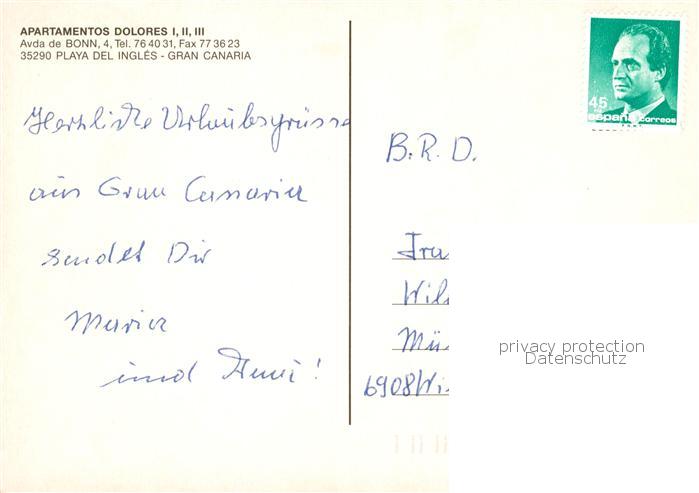 APARTAMENTOS DOLORES I, II, III
Avda de BONN, 4, Tel. 76 40 31, Fax 77 36 23
35290 PLAYA DEL INGLÉS - GRAN CANARIA
Herzliche Urlaubsgrüsse
aus Gran Canaria
sendet Dir
Maria
und
45
España correos
B.R.D.
Fra
Wil
Mü
6908 Wi
privacy protection
Datenschutz